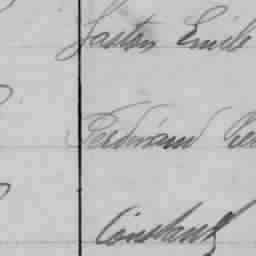 Gaston Emile
Ferdinand
Constant